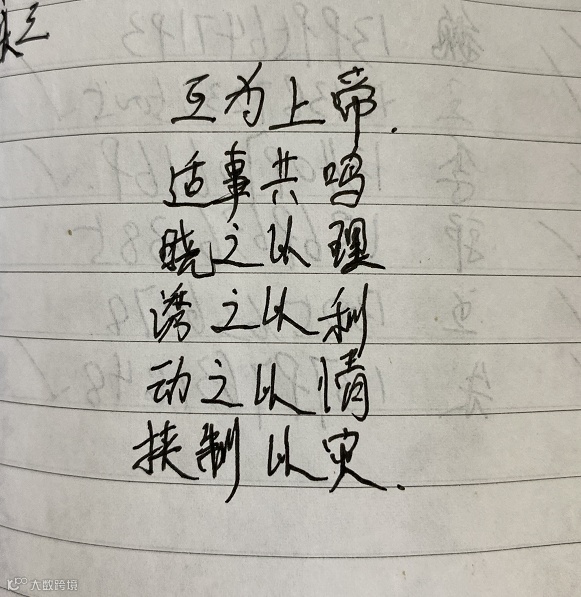 互为上帝.
适事共鸣
晓之以理
诱之以利
动之以情
挟制以灾.
大数跨境